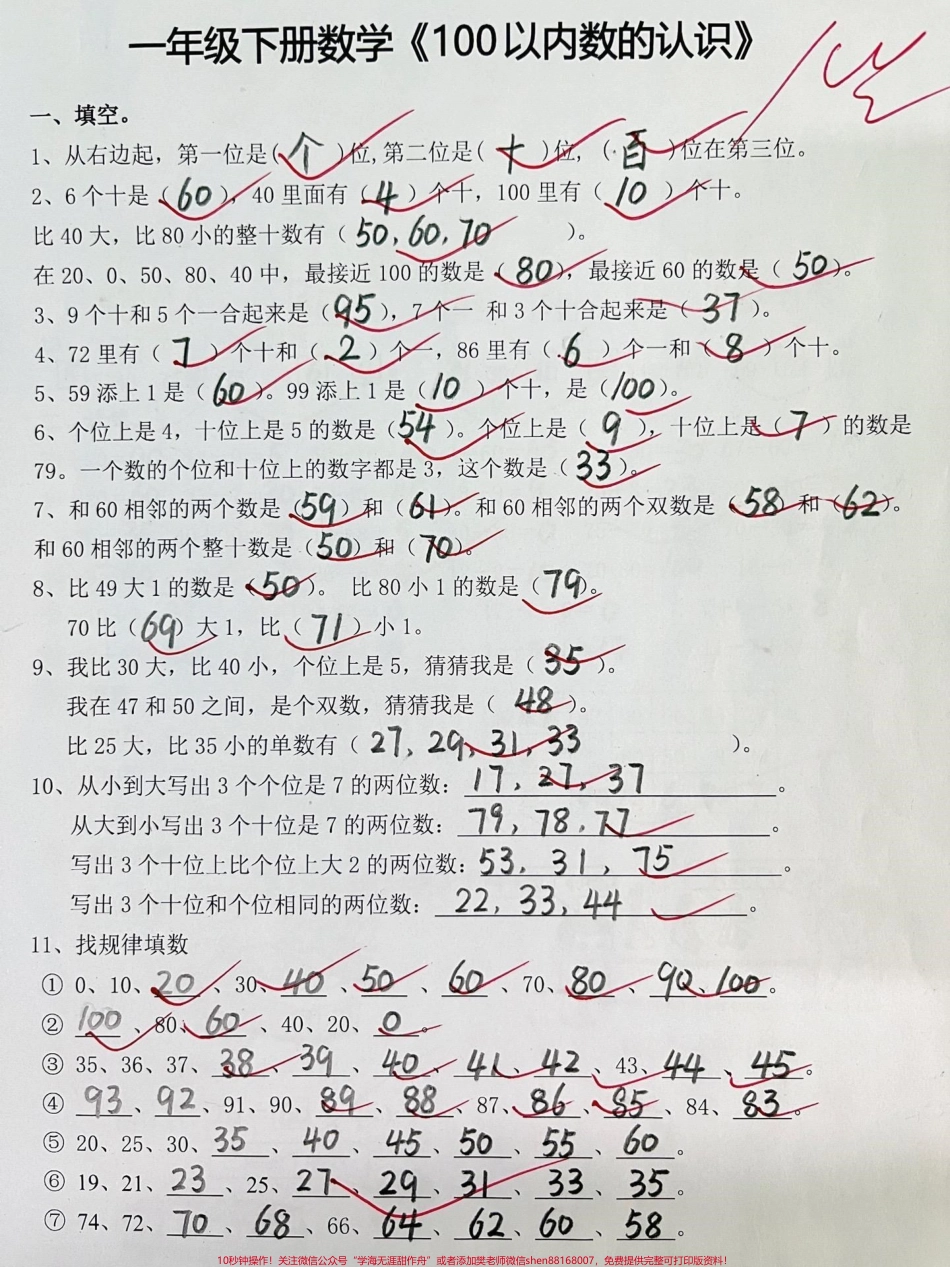 一年级下册数学《100以内数的认识》
一、填空。
1、从右边起，第一位是(个)位,第二位是(十)位,(百)位在第三位。
2、6个十是（60），40里面有（4）个十，100里有（10）个十。
比40大，比80小的整十数有（50,60,70）。
在20、0、50、80、40中，最接近100的数是（80），最接近60的数是（50）。
3、9个十和5个一合起来是（95），7个一 和3个十合起来是（37）。
4、72里有（7）个十和（2）个一，86里有（6）个一和（8）个十。
5、59添上1是（60）。99添上1是（10）个十，是（100）。
6、个位上是4，十位上是5的数是（54）。个位上是（9），十位上是（7）的数是
79。一个数的个位和十位上的数字都是3，这个数是（33）。
7、和60相邻的两个数是（59）和（61）。和60相邻的两个双数是（58）和（62）。
和60相邻的两个整十数是（50）和（70）。
8、比49大1的数是（50）。 比80小1的数是（79）。
70比（69）大1，比（71）小1。
9、我比30大，比40小，个位上是5，猜猜我是（35）。
我在47和50之间，是个双数，猜猜我是（48）。
比25大，比35小的单数有（27,29,31,33）。
10、从小到大写出3个个位是7的两位数：17,27,37。
从大到小写出3个十位是7的两位数：79,78,77。
写出3个十位上比个位上大2的两位数:53,31,75。
写出3个十位和个位相同的两位数：22,33,44。
11、找规律填数
① 0、10、20、30、40、50、60、70、80、90、100。
② 100、80、60、40、20、0。
③ 35、36、37、38、39、40、41、42、43、44、45。
④ 93、92、91、90、89、88、87、86、85、84、83。
⑤ 20、25、30、35、40、45、50、55、60。
⑥ 19、21、23、25、27、29、31、33、35。
⑦ 74、72、70、68、66、64、62、60、58。
10秒钟操作！关注微信公众号“学海无涯甜作舟”或者添加樊老师微信shen88168007，免费提供完整可打印版资料！